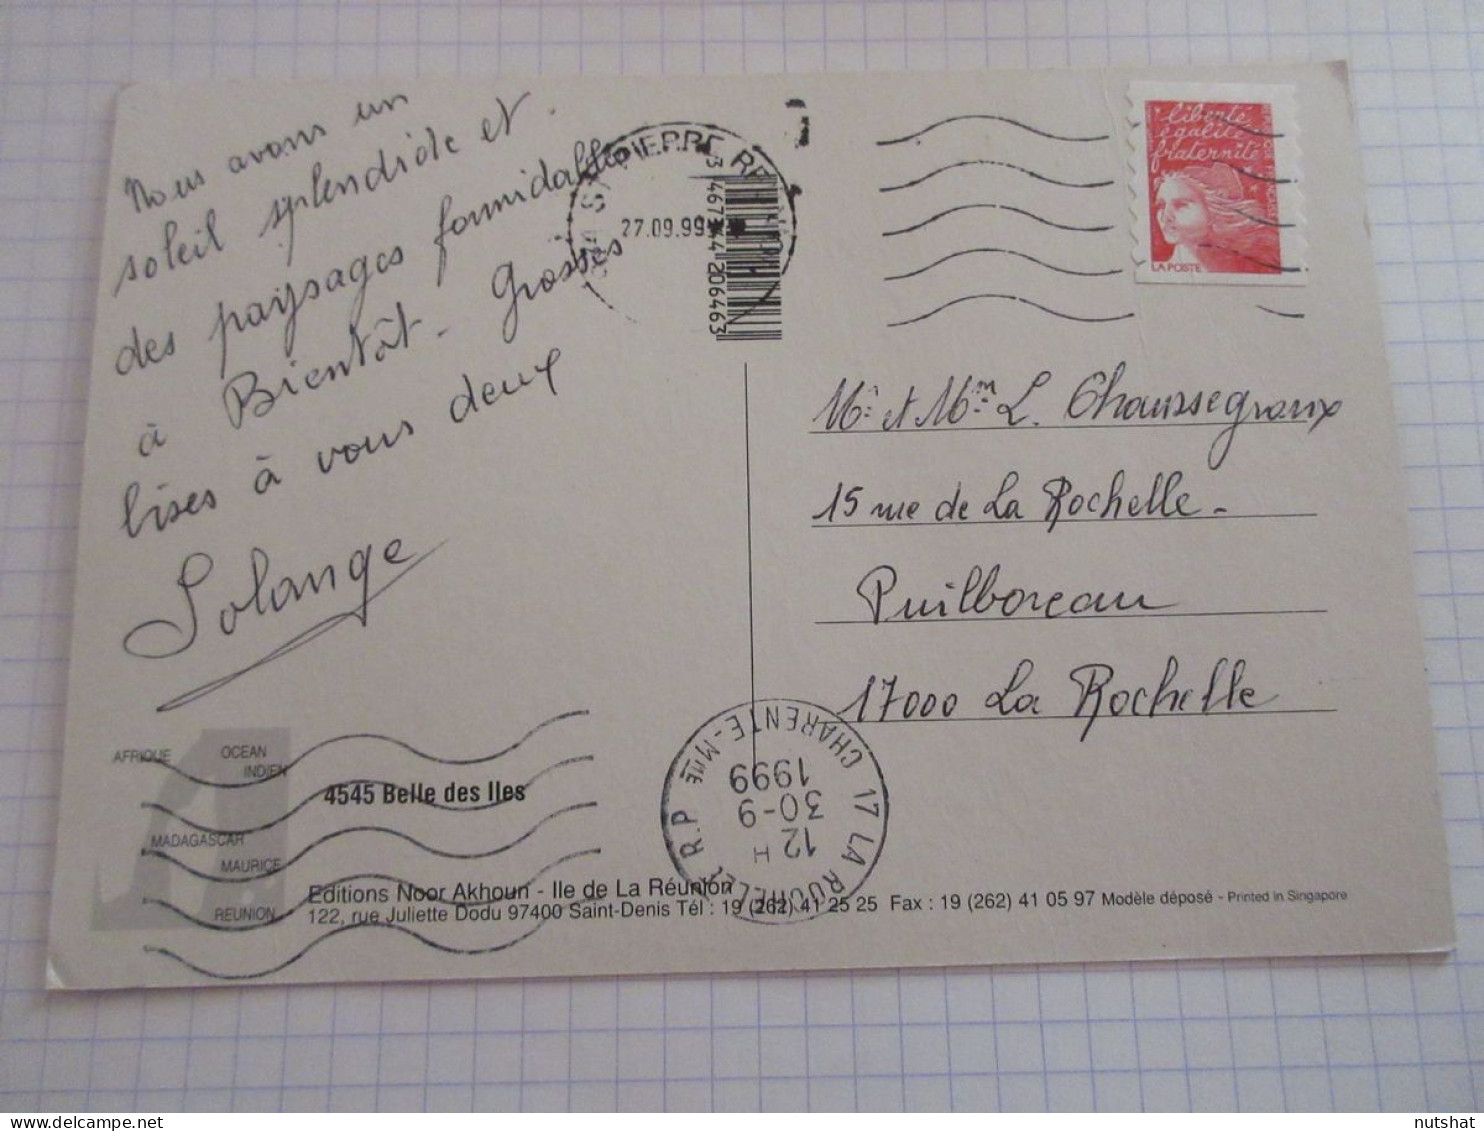 Nous avons un
soleil splendide et
des paysages formidables
à Bientôt - Grosses
bises à vous deux
Solange
PIERRE RE
27.09.99
3 467 44 206463
liberté
égalité
fraternité
LA POSTE
Mr et Mme L. Chaussegroux
15 rue de La Rochelle -
Puilboreau
17000 La Rochelle
17 LA ROCHELLE R.P CHARENTE-Mme
12 H
30-9
1999
AFRIQUE
OCEAN
INDIEN
MADAGASCAR
MAURICE
REUNION
4545 Belle des Iles
Editions Noor Akhoun - Ile de La Réunion
122, rue Juliette Dodu 97400 Saint-Denis Tél : 19 (262) 41 25 25 Fax : 19 (262) 41 05 97 Modèle déposé - Printed in Singapore
nutshat